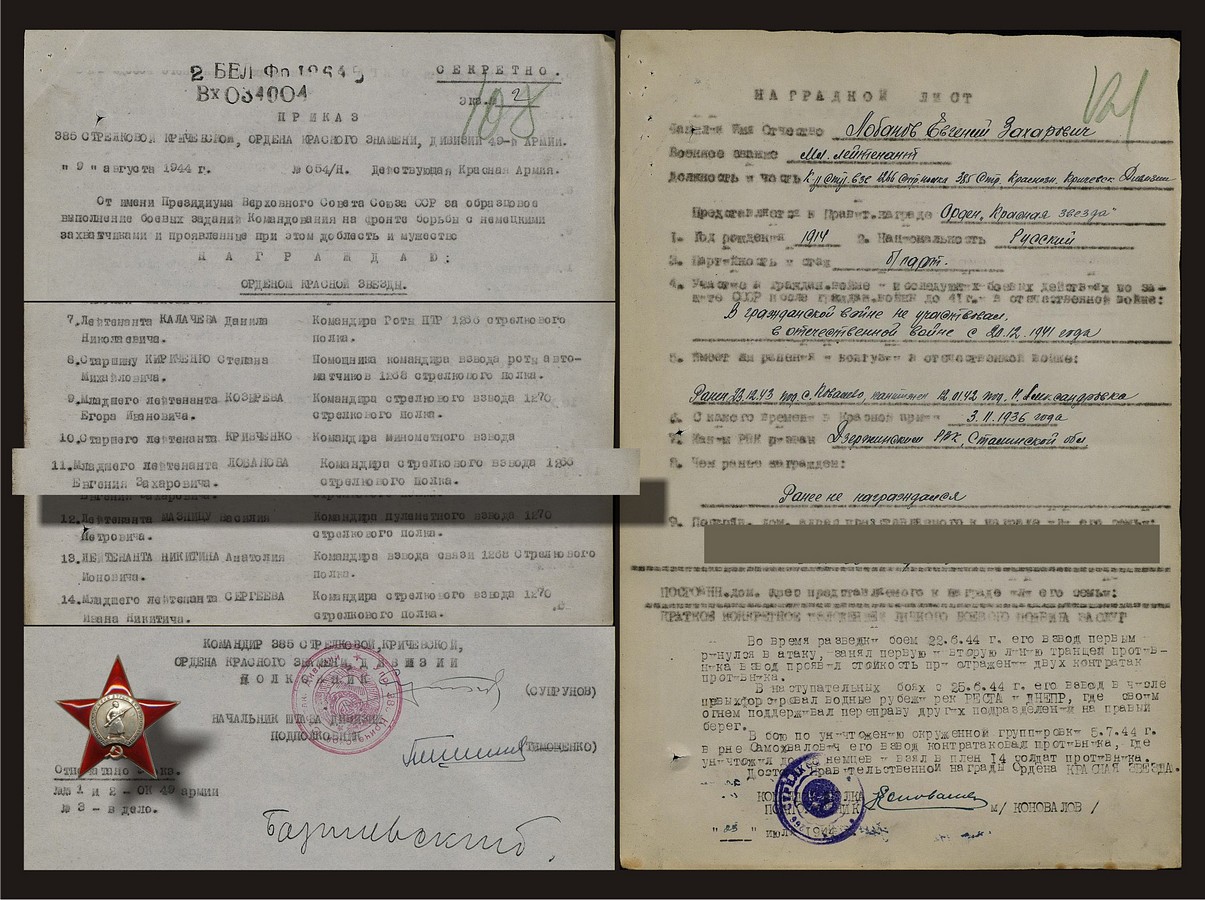 2 БЕЛ Фр
Вх 034004
СЕКРЕТНО.
экз. 2
108
ПРИКАЗ
385 СТРЕЛКОВОЙ, КРИЧЕВСКОЙ, ОРДЕНА КРАСНОГО ЗНАМЕНИ, ДИВИЗИИ 49-й АРМИИ.
"9" августа 1944 г. № 054/Н. Действующая Красная Армия.
От имени Президиума Верховного Совета Союза ССР за образцовое
выполнение боевых заданий Командования на фронте борьбы с немецкими
захватчиками и проявленные при этом доблесть и мужество
НАГРАЖДАЮ:
ОРДЕНОМ КРАСНОЙ ЗВЕЗДЫ.
7. Лейтенанта КАЛАЧЕВА Данила Командира Роты ПТР 1266 стрелкового
Николаевича. полка.
8. Старшину КИРИЧЕНКО Степана Помощника командира взвода роты авто-
Михайловича. матчиков 1268 стрелкового полка.
9. Младшего лейтенанта КОЗЫРЕВА Командира стрелкового взвода 1270
Егора Ивановича. стрелкового полка.
10. Старшего лейтенанта КРИВЧЕНКО Командира минометного взвода
11. Младшего лейтенанта ЛОБАНОВА Командира стрелкового взвода 1266
Евгения Захаровича. стрелкового полка.
12. Лейтенанта Василия Командира пулеметного взвода 1270
Петровича. стрелкового полка.
13. ЛЕЙТЕНАНТА НИКИТИНА Анатолия Командира взвода связи 1268 Стрелкового
Ионовича. полка.
14. Младшего лейтенанта СЕРГЕЕВА Командира стрелкового взвода 1270
Ивана Никитича. стрелкового полка.
КОМАНДИР 385 СТРЕЛКОВОЙ, КРИЧЕВСКОЙ,
ОРДЕНА КРАСНОГО ЗНАМЕНИ, ДИВИЗИИ
ПОЛКОВНИК (СУПРУНОВ)
НАЧАЛЬНИК ШТАБА ДИВИЗИИ
ПОДПОЛКОВНИК (ТИМОЩЕНКО)
Отпечатано экз.
№№ 1 и 2 - ОК 49 армии
№ 3 - в дело.
НАГРАДНОЙ ЛИСТ
Фамилия Имя Отчество Лобанов Евгений Захарович
Военное звание Мл. лейтенант
Должность и часть К-р стр. взв. 1266 стр. полка 385 Стр. Краснозн. Кричевск. Дивизии
Представляется к Правит. награде Орден „Красная звезда"
1. Год рождения 1914 2. Национальность Русский
3. Партийность и стаж б/парт.
4. Участие в граждан. войне и последующих боевых действиях по за-
щите СССР после граждан. войны до 41 г. и в отечественной войне:
В гражданской войне не участвовал,
в отечественной войне с 20.12.1941 года
5. Имеет ли ранения и контузии в отечественной войне:
Ранен 23.12.43 под с. контужен 12.01.42 под Н. Александровка
6. С какого времени в Красной армии 3.11.1936 года
7. Каким РВК призван Дзержинским РВК, Сталинской обл.
8. Чем ранее награжден:
Ранее не награждался
9. Постоян. дом. адрес представляемого к награде или его семьи:
ПОСТОЯНН. дом. адрес представляемого к награде или его семьи:
КРАТКОЕ КОНКРЕТНОЕ ИЗЛОЖЕНИЕ ЛИЧНОГО БОЕВОГО ПОДВИГА ЗАСЛУГ
Во время разведки боем 22.6.44 г. его взвод первым
ринулся в атаку, занял первую и вторую линию траншей против-
ника взвод проявил стойкость при отражении двух контратак
противника.
В наступательных боях с 25.6.44 г. его взвод в числе
первых форсировал водные рубежи рек РЕСТА и ДНЕПР, где своим
огнем поддерживал переправу других подразделений на правый
берег.
В бою по уничтожению окруженной группировки 5.7.44 г.
в рне Самохваловичи его взвод контратаковал противника, где
уничтожил до немцев и взял в плен 14 солдат противника.
Достоин Правительственной награды Ордена КРАСНАЯ ЗВЕЗДА.
КОМАНДИР ПОЛКА
/ КОНОВАЛОВ /
июля 1944